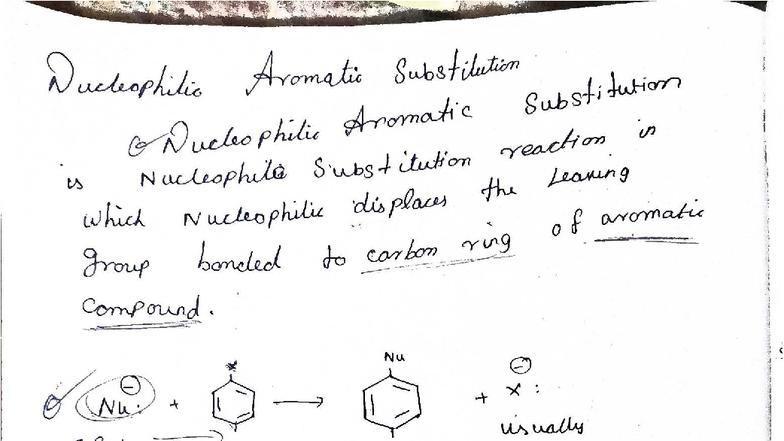 Nucleophilic Aromatic Substitution
Nucleophilic Aromatic Substitution
is Nucleophilic Substitution reaction in
which Nucleophilic displaces the Leaving
group bonded to carbon ring of aromatic
compound.
Nu
Nu: ⊖ + x → + x: ⊖
usually